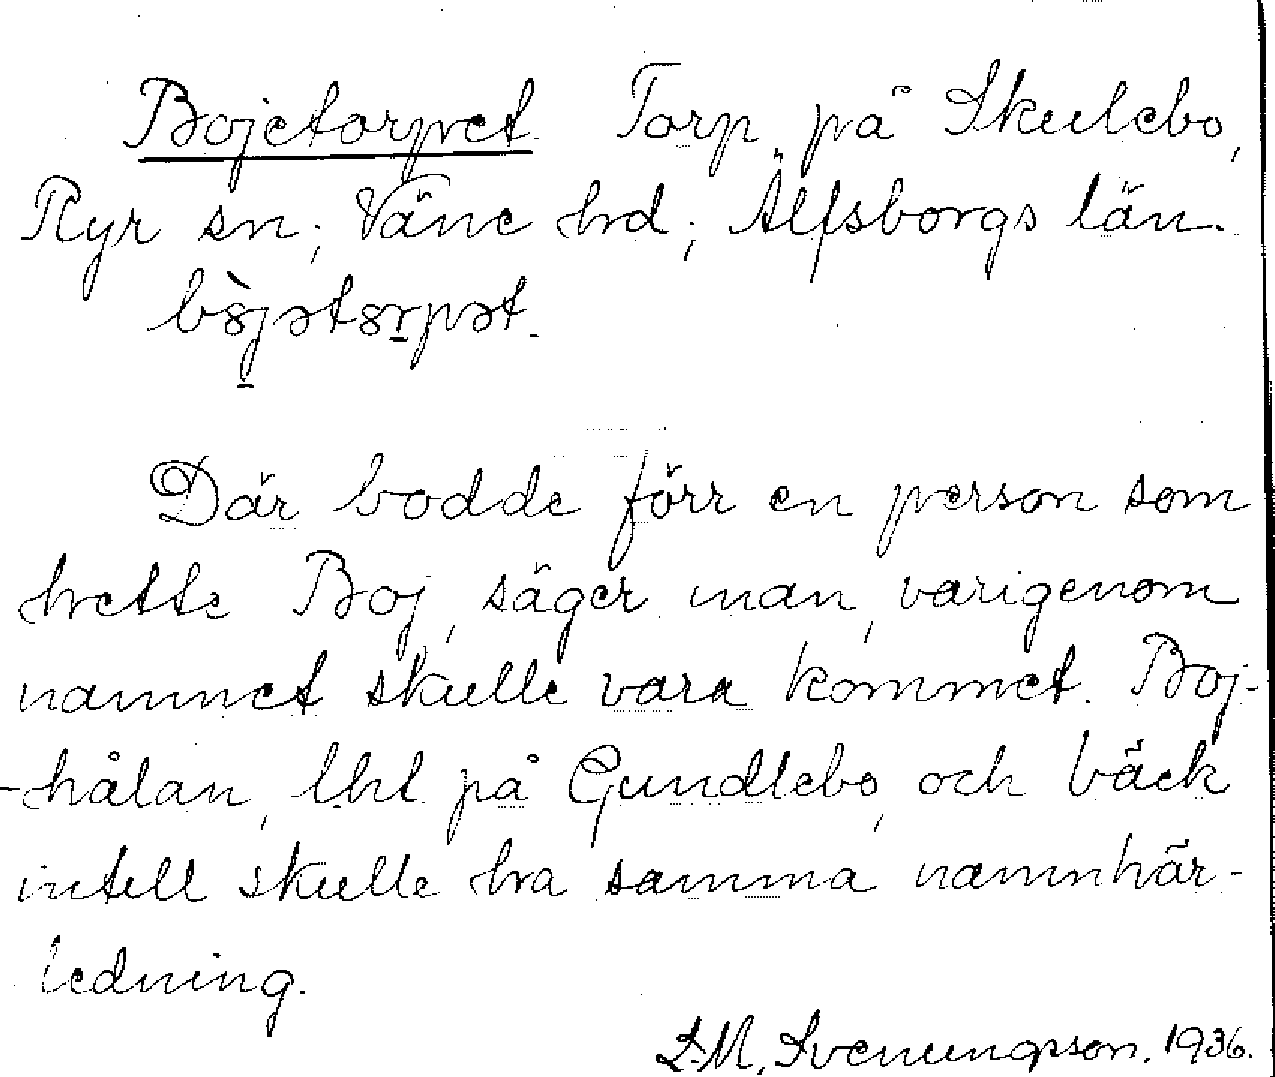 Bojetorpet Torp på Skulebo,
Ryr sn; Väne hrd; Älfsborgs län.
Där bodde förr en person som
hette Boj, säger man, varigenom
namnet skulle vara kommet. Boj-
-hålan, lht på Gundlebo, och bäck
intill skulle ha samma namnhär-
ledning.
S.M. Svenungsson. 1936.